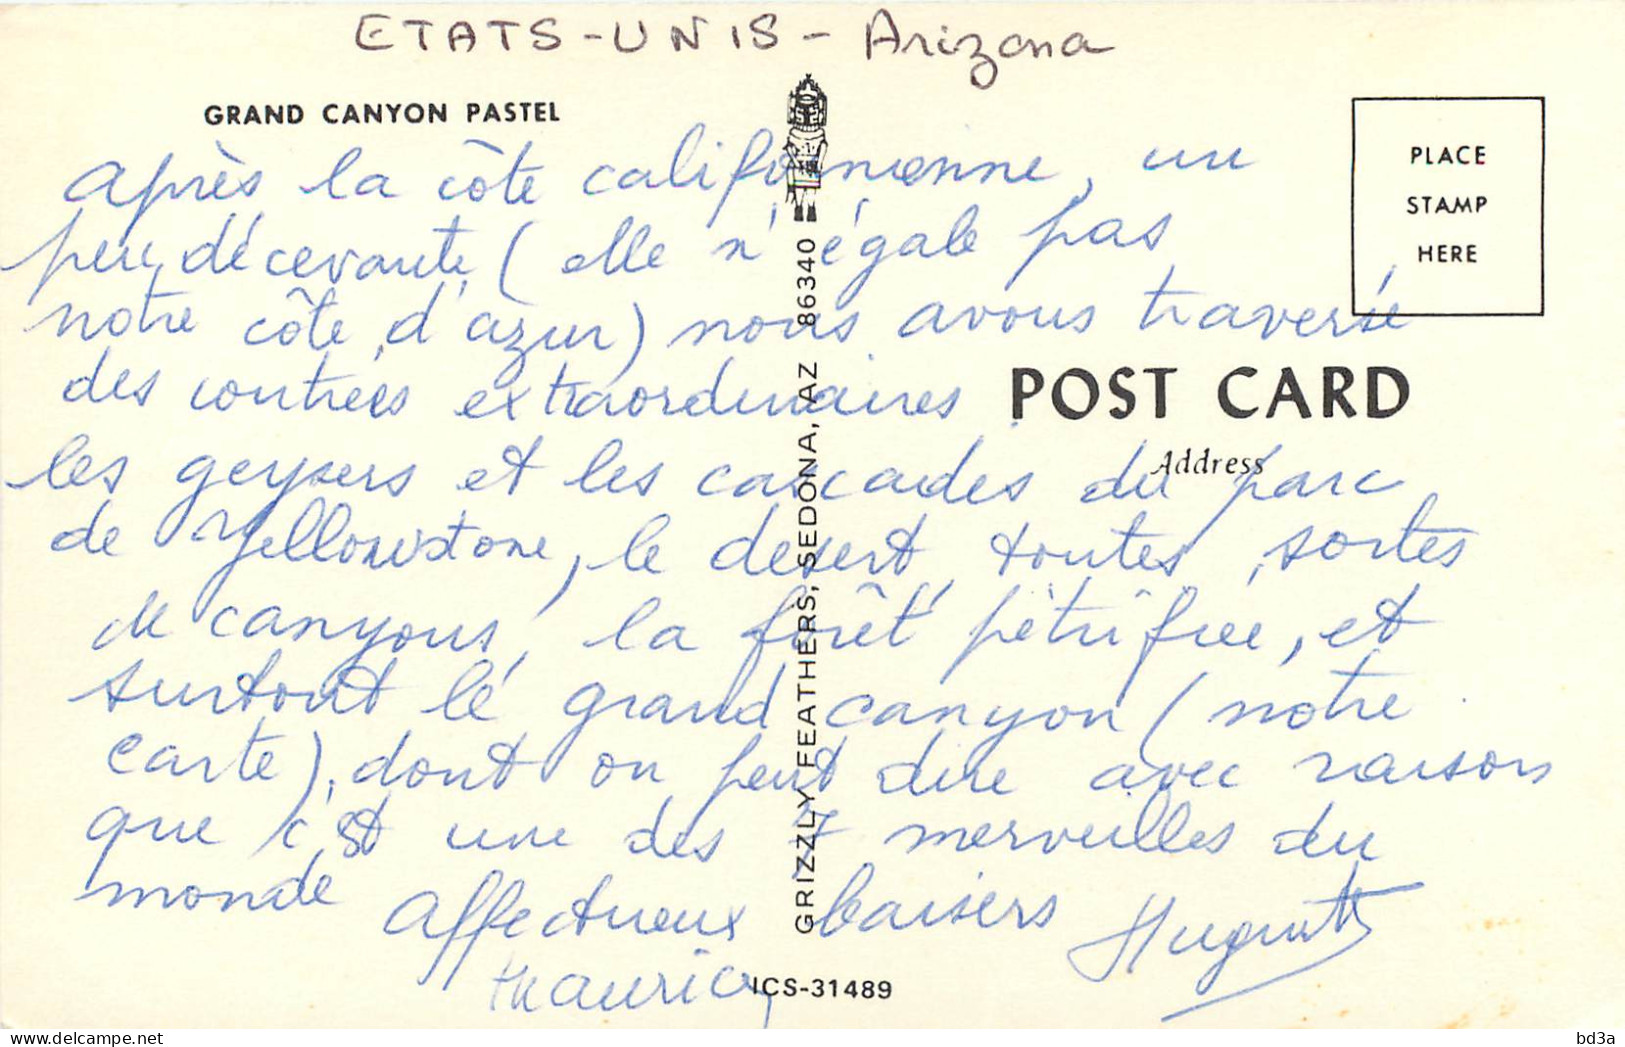 ETATS-UNIS - Arizona
GRAND CANYON PASTEL
PLACE
STAMP
HERE
après la côte californienne, un
peu décevante, (elle n'égale pas
notre côte d'azur) nous avons traversé
des contrées extraordinaires
POST CARD
Address
les geysers et les cascades du parc
de Yellowstone, le desert, toutes sortes
de canyons, la forêt pétrifiée, et
surtout le grand canyon (notre
carte), dont on peut dire avec raison
que c'est une des 7 merveilles du
monde
Affectueux baisers Huguette
Maurice
GRIZZLY FEATHERS, SEDONA, AZ 86340
ICS-31489
bd3a